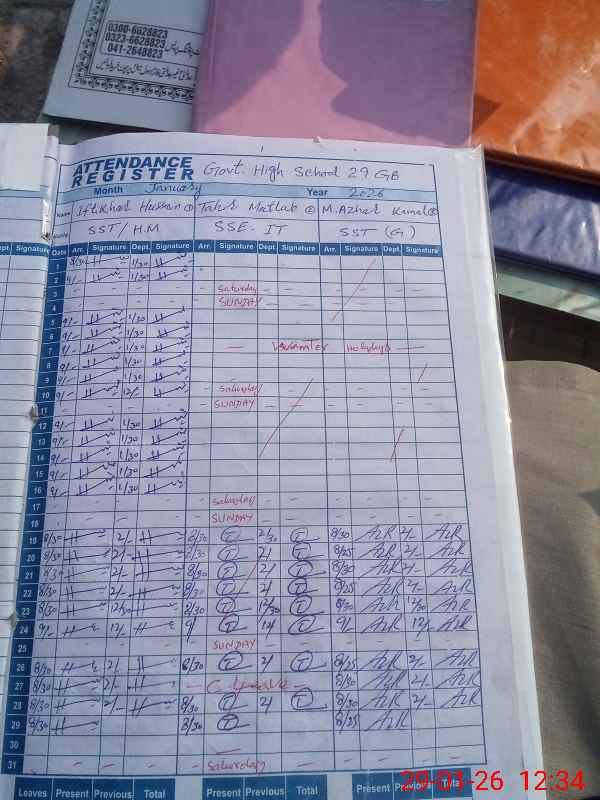 0300-6628823
0323-6628823
041-2648823
ATTENDANCE REGISTER Govt. High School 29 GB
Month January Year 2026
Name Iftikhar Hussain Tahir Matlub M.Azhar Kamal
SST/H.M SSE-IT SST (G)
Dept. Signature Date Arr. Signature Dept. Signature Arr. Signature Dept. Signature Arr. Signature Dept. Signature
1 8/30 1/30
2 9/- 1/30
3 Saturday
4 SUNDAY
5 9/- 1/30
6 9/- 1/30
7 9/- 1/30 Winter Holidays
8 9/- 1/30
9 9/- 1/30
10 9/- 12/- Saturday
11 SUNDAY
12 9/- 1/30
13 9/- 1/30
14 9/- 1/30
15 9/- 1/30
16 9/- 1/30
17 Saturday
18 SUNDAY
19 8/30 2/- 8/30 T 2/30 T 8/30 AzR 2/- AzR
20 8/30 2/- 8/30 T 2/ T 8/25 AzR 2/- AzR
21 8/30 2/- 8/30 T 2/ T 8/30 AzR 2/- AzR
22 8/30 2/- 8/30 T 2/ T 8/25 AzR 2/- AzR
23 8/30 12/30 8/30 T 12/30 T 8/30 AzR 12/30 AzR
24 9/- 12/- 9/ T 12/ T 9/- AzR 12/- AzR
25 SUNDAY
26 8/30 2/- 8/30 T 2/ T 8/25 AzR 2/- AzR
27 8/30 2/- C. Leave 8/30 AzR 2/- AzR
28 8/30 2/- 8/30 T 2/ T 8/30 AzR 2/- AzR
29 8/30 8/30 T 8/25 AzR
30
31 Saturday
Leaves Present Previous Total Present Previous Total Present Previous Total
29-01-26 12:34